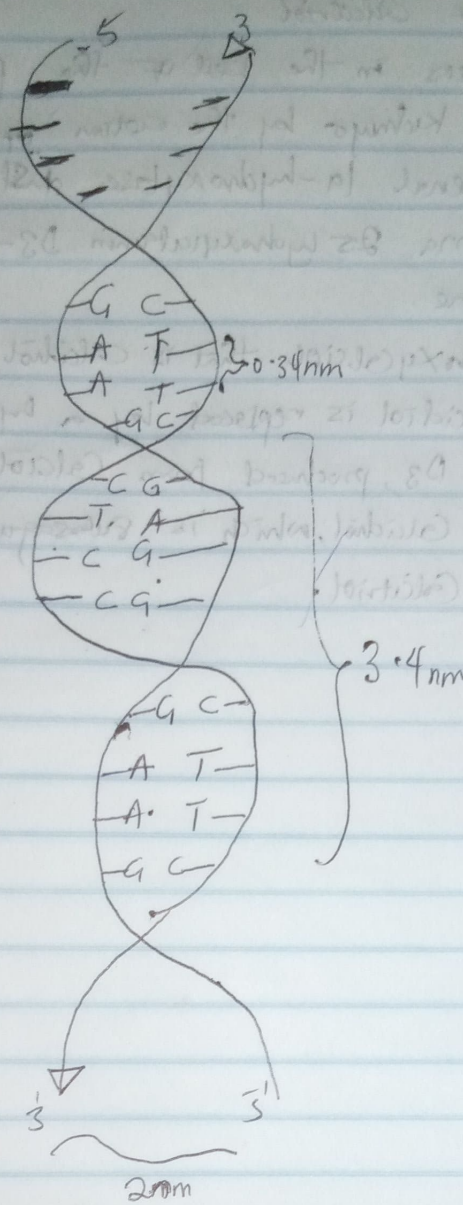 5 3
G C
A T
A T
0.34nm
G C
C G
T A
C G
C G
3.4nm
G C
A T
A T
G C
3' 5'
2nm